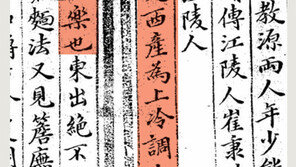 教源兩人年少
傳江陵人崔秉
江陵人
西產為上冷調
樂也東出絕不
麵法又見簷廡